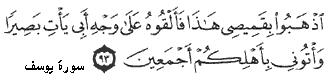 ٱذۡهَبُواْ بِقَمِيصِي هَٰذَا فَأَلۡقُوهُ عَلَىٰ وَجۡهِ أَبِي يَأۡتِ بَصِيرٗا
وَأۡتُونِي بِأَهۡلِكُمۡ أَجۡمَعِينَ ٩٣
سورة يوسف